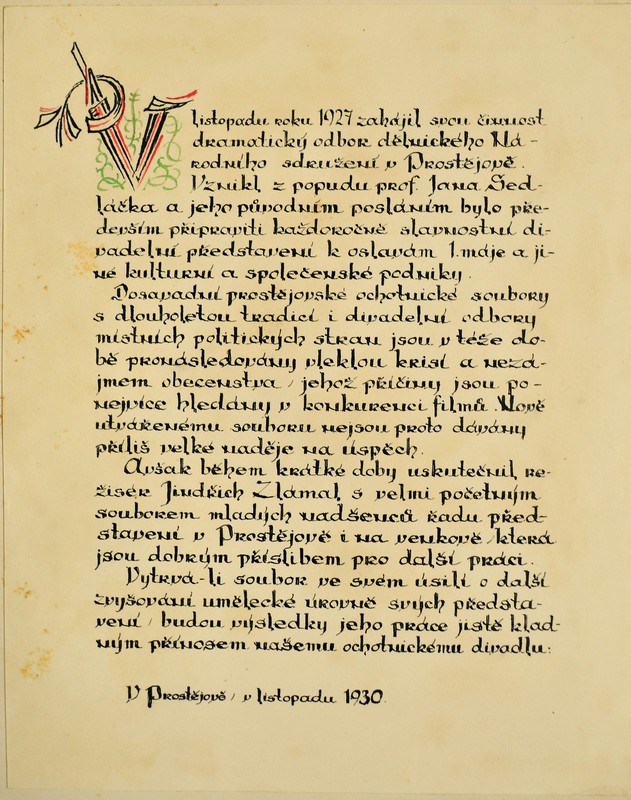 V listopadu roku 1927 zahájil svou činnost
dramatický odbor dělnického Ná-
rodního sdružení v Prostějově.
Vznikl z popudu prof. Jana Sed-
láčka a jeho původním posláním bylo pře-
devším připraviti každoročně slavnostní di-
vadelní představení k oslavám 1. máje a ji-
né kulturní a společenské podniky.
Dosavadní prostějovské ochotnické soubory
s dlouholetou tradicí i divadelní odbory
místních politických stran jsou v téže do-
bě pronásledovány vleklou krisí a nezá-
jmem obecenstva, jehož příčiny jsou po-
nejvíce hledány v konkurenci filmů. Nově
utvářenému souboru nejsou proto dávány
příliš velké naděje na úspěch.
Avšak během krátké doby uskutečnil re-
žisér Jindřich Zlámal s velmi početným
souborem mladých nadšenců řadu před-
stavení v Prostějově i na venkově, která
jsou dobrým příslibem pro další práci.
Vytrvá-li soubor ve svém úsilí o další
zvyšování umělecké úrovně svých představ-
vení, budou výsledky jeho práce jistě klad-
ným přínosem našemu ochotnickému divadlu.
V Prostějově, v listopadu 1930.